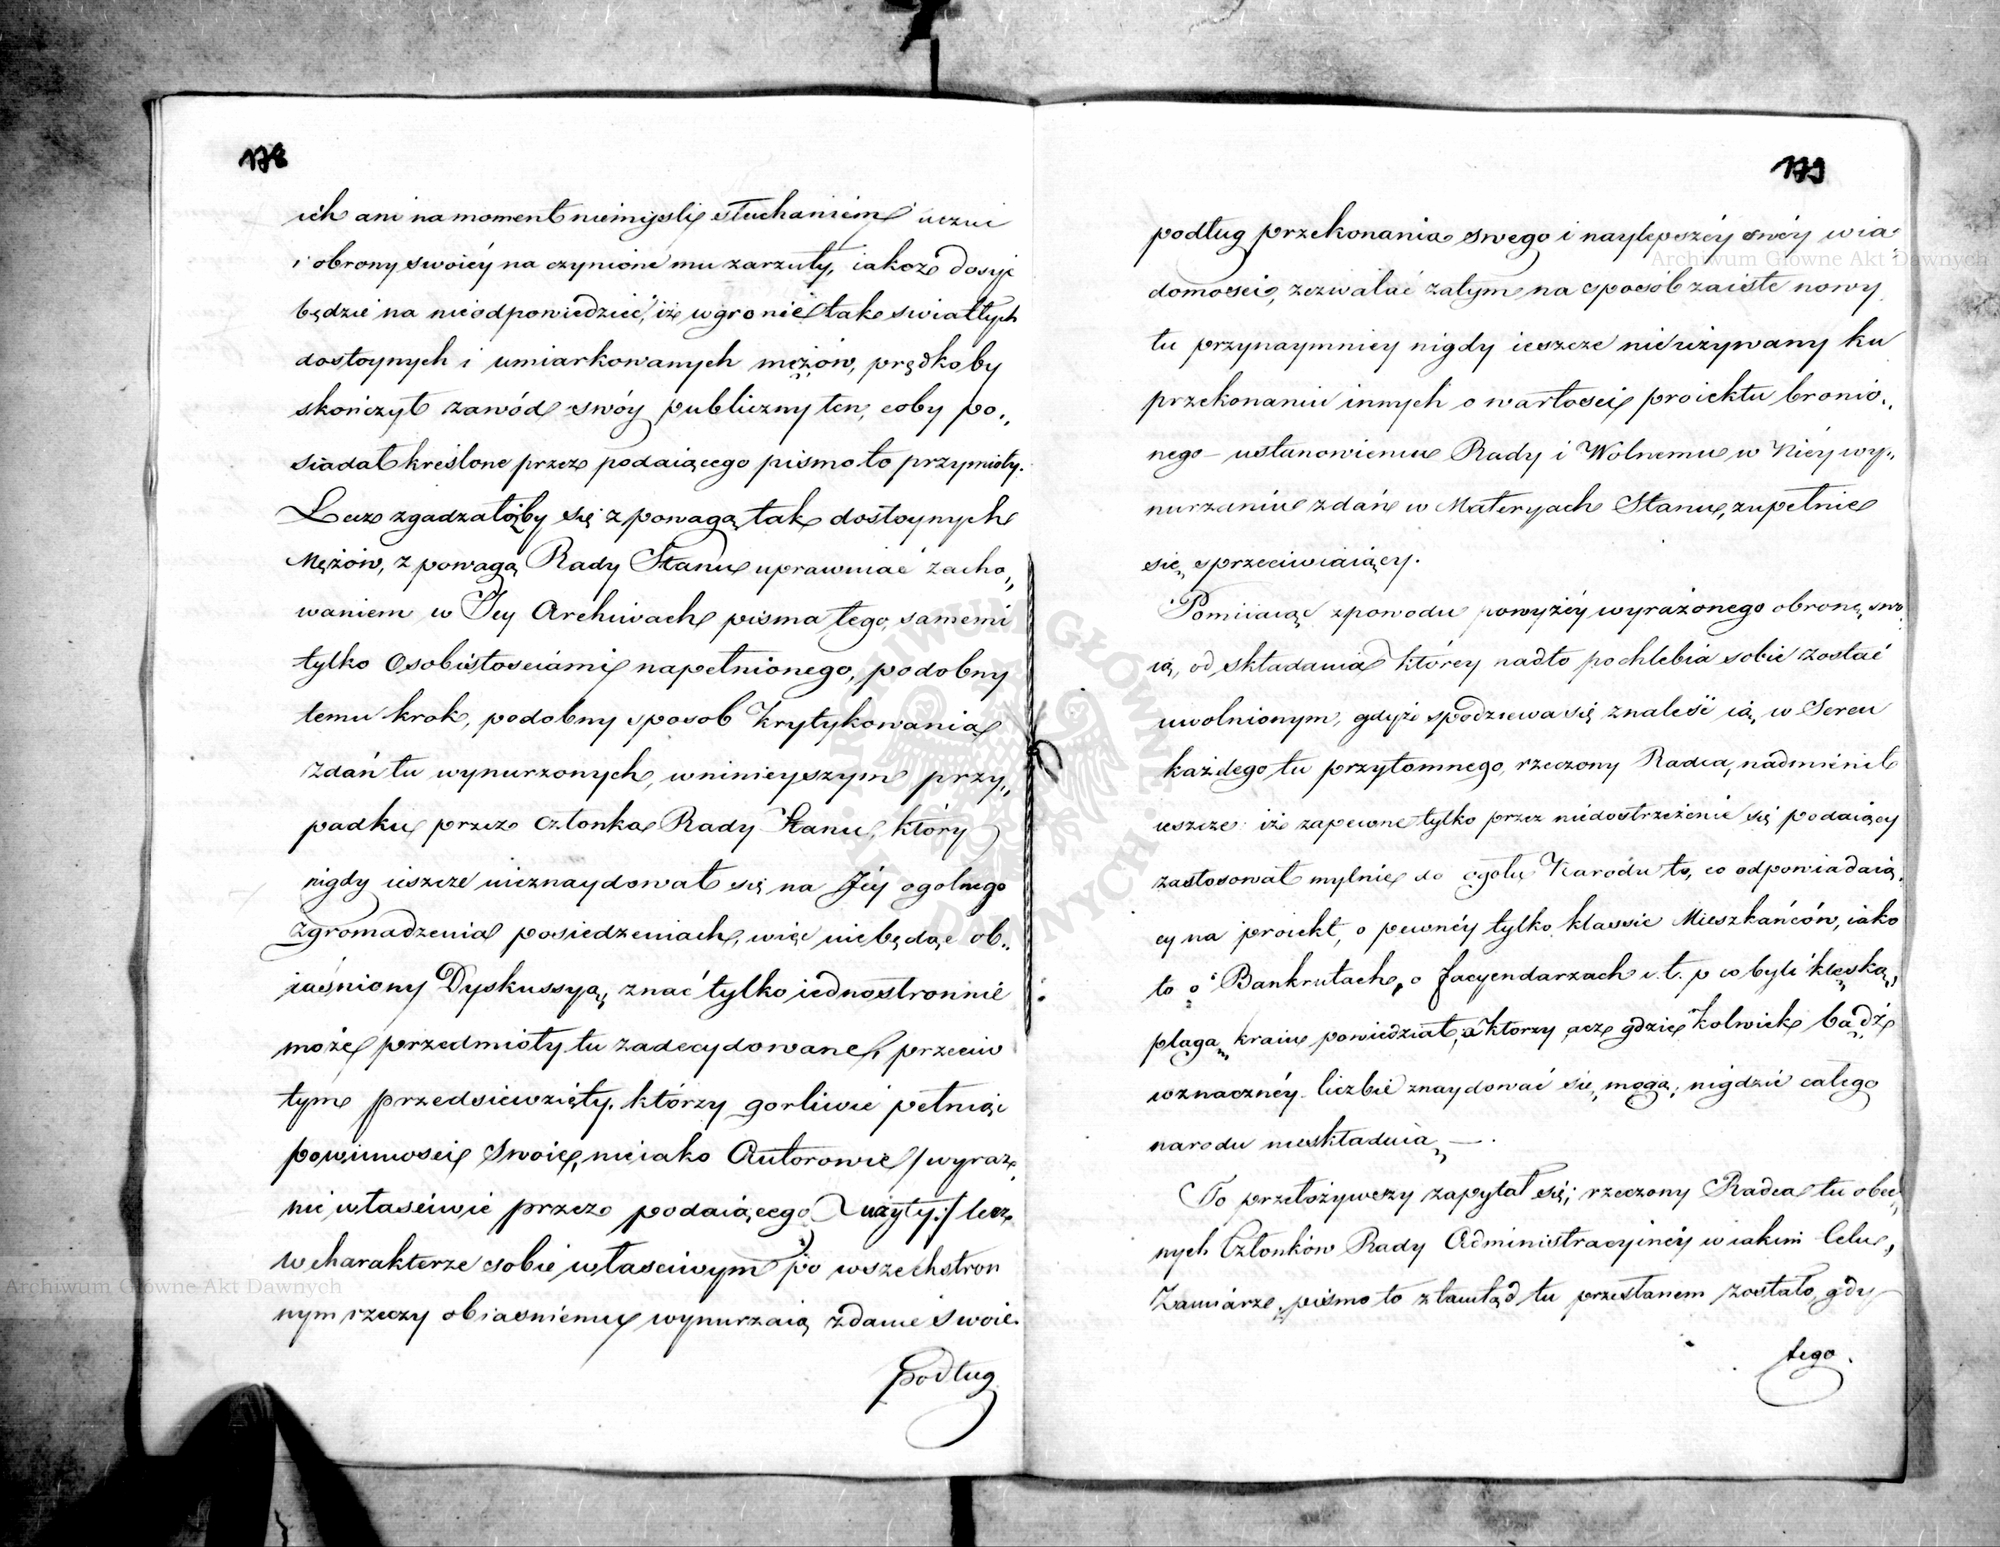 178
ich ani na moment niemyśli słuchaniem uczni
i obrony swoiéy na czynione mu zarzuty, iakoż dosyć
będzie na nieodpowiedzieć, iż w gronie tak swiatłych
dostoynych i umiarkowanych mężów, prędkoby
skończył zawód swóy publiczny ten, coby po„
siadał kreślone przez podaiącego pismo to przymioty.
Lecz zgadzałożby się z powagą tak dostoynych
Mężów, z powagą Rady Stanu uprawniać zacho„
waniem w Jey Archiwach pisma tego, samemi
tylko Osobistościami napełnionego, podobny
temu krok, podobny sposob krytykowania
zdań tu wynurzonych, w ninieyszym przy„
padku przez członka Rady Stanu, który
nigdy ieszcze nieznaydował się na Jéy ogolnego
zgromadzenia posiedzeniach, więc niebędąc ob„
iaśniony Dyskussyą, znać tylko iednostronnie
może przedmioty tu zadecydowane, przeciw
tym przedsiewzięty, którzy gorliwie pełniąc
powinności swoie, nie iako Autorowie /wyraz
nie właściwie przez podaiącego użyty:/ lecz
w charakterze sobie właściwym po wszechstron
nym rzeczy obiaśnieniu wynurzaią zdanie swoie.
Podług
179
podług przekonania swego i naylepszéy swéy wia„
domości, zezwalać zatym na sposób zaiste nowy
tu przynaymniey nigdy ieszcze nieużywany ku
przekonaniu innych o wartości proiektu bronio„
nego – ustanowieniu Rady i Wolnemu w Niéy wy„
nurzaniu zdań w Materyach Stanu, zupełnie
się sprzeciwiaiący.
Pomiiaiąc z powodu powyżéy wyrażonego obronę swo„
ią, od składania któréy nadto pochlebia sobie zostać
uwolnionym, gdyż spodziewa się znaleść ią, w Sercu
każdego tu przytomnego, rzeczony Radca, nadmienił
ieszcze iż zapewne tylko przez niedostrzeżenie się podaiący
zastosował mylnie do ogołu Narodu to, co odpowiadaią„
cy na proiekt, o pewnéy tylko klassie Mieszkańców, iako
to o Bankrutach, o facyendarzach i. t. p co byli klęską,
plagą kraiu powiedział, a ktorzy acz gdzie kolwiek bądź
w znacznéy liczbie znaydować się mogą, nigdzie całego
narodu nieskładaią —.
To przełożywszy zapytał się; rzeczony Radca tu obec„
nych Członków Rady Administracyinéy w iakim Celu,
Zamiarze, pismo to z tamtąd tu przesłanem zostało, gdy
tego.
Archiwum Główne Akt Dawnych
Archiwum Główne Akt Dawnych
ARCHIWUM GŁÓWNE AKT DAWNYCH